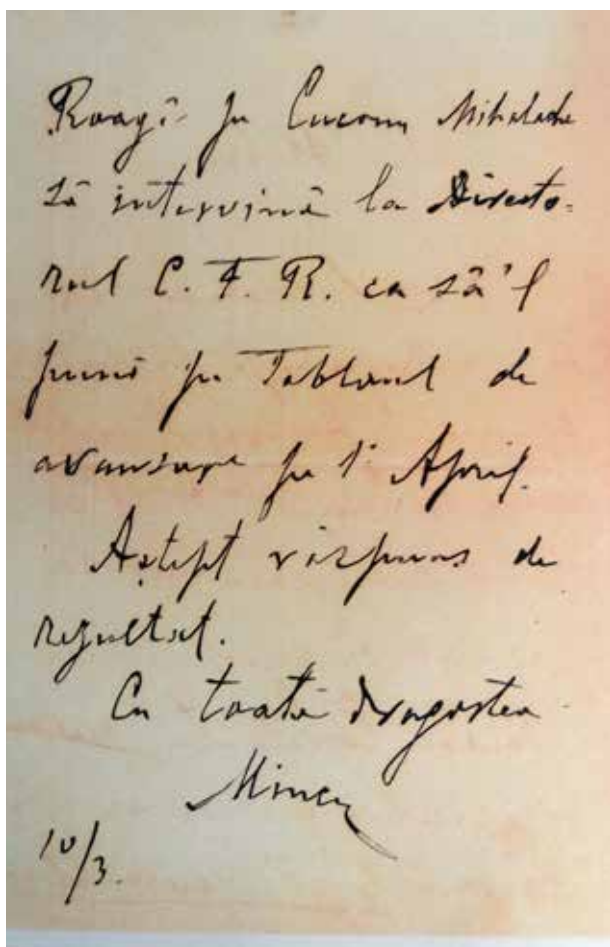 Roagă pe Cuconu Mihalache
să intervină la Directo-
rul C. F. R. ca să'l
pună pe Tabloul de
avansare pe 1 April.
Aștept răspuns de
rezultat.
Cu toată dragostea
Mincu
10/3.